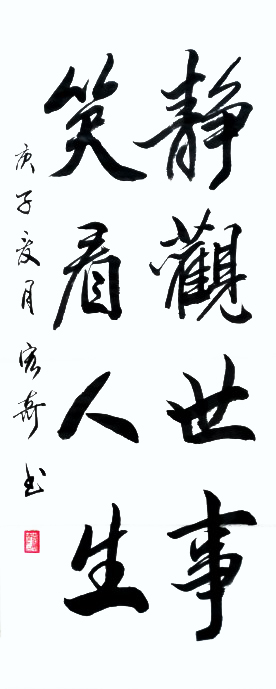 靜觀世事
笑看人生
庚子夏月宏奇书